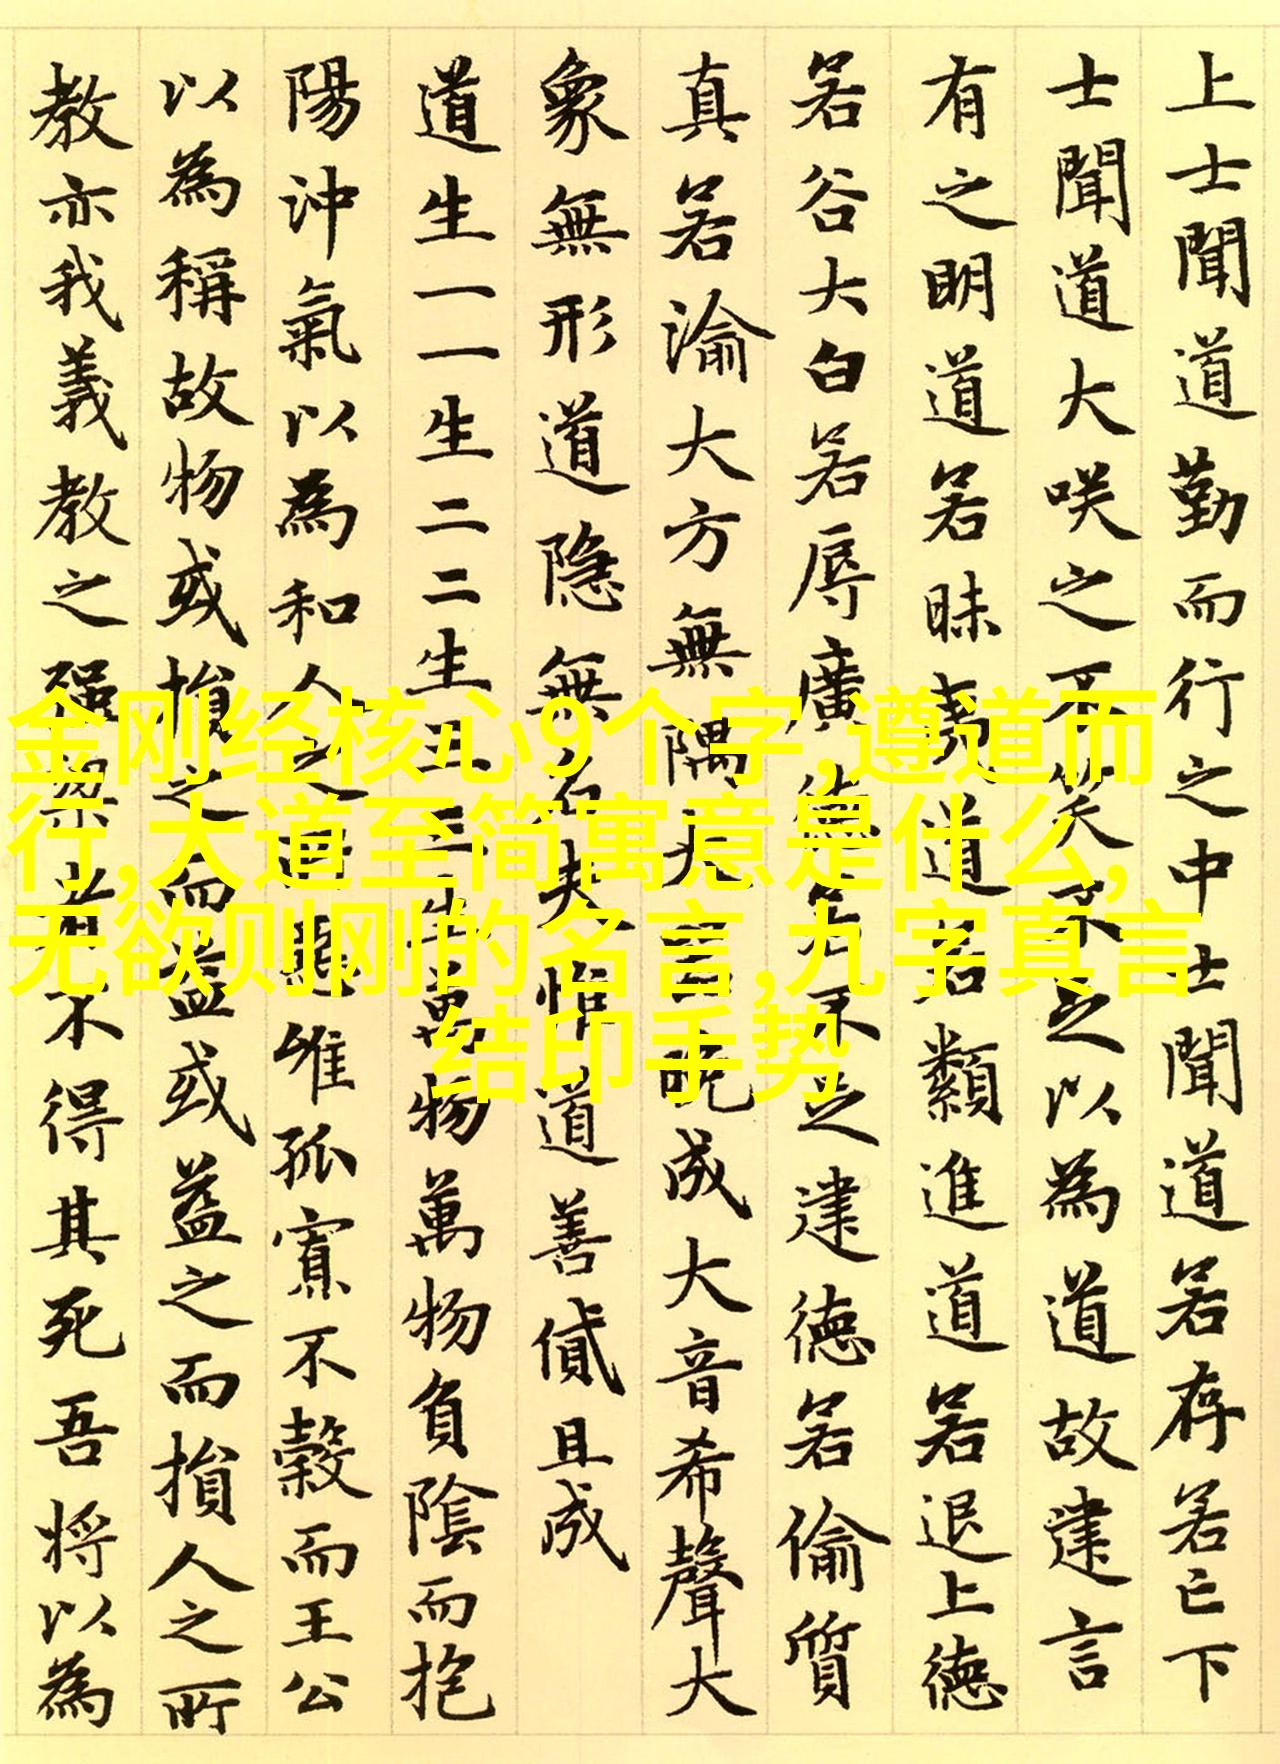 上士聞道勤而行之中士聞道若存若亡下
士聞道大咲之不笑不足以為道故建言
有之明道若昧夷道若類進道若退上德
若谷大白若辱廣德若不足建德若偷質
真若渝大方無隅大器晚成大音希聲大
象無形道隐無名夫惟道善貸且成
道生一一生二二生三三生萬物萬物負陰而抱
陽沖氣以為和人之所惡唯孤寡不穀而王公
以為稱故物或損之而益或益之而損人之所
教亦我義教之强梁者不得其死吾将以為
金刚经核心9个字,遵道而
行,大道至简寓意是什么,
无欲则刚的名言,九字真言
结印手势